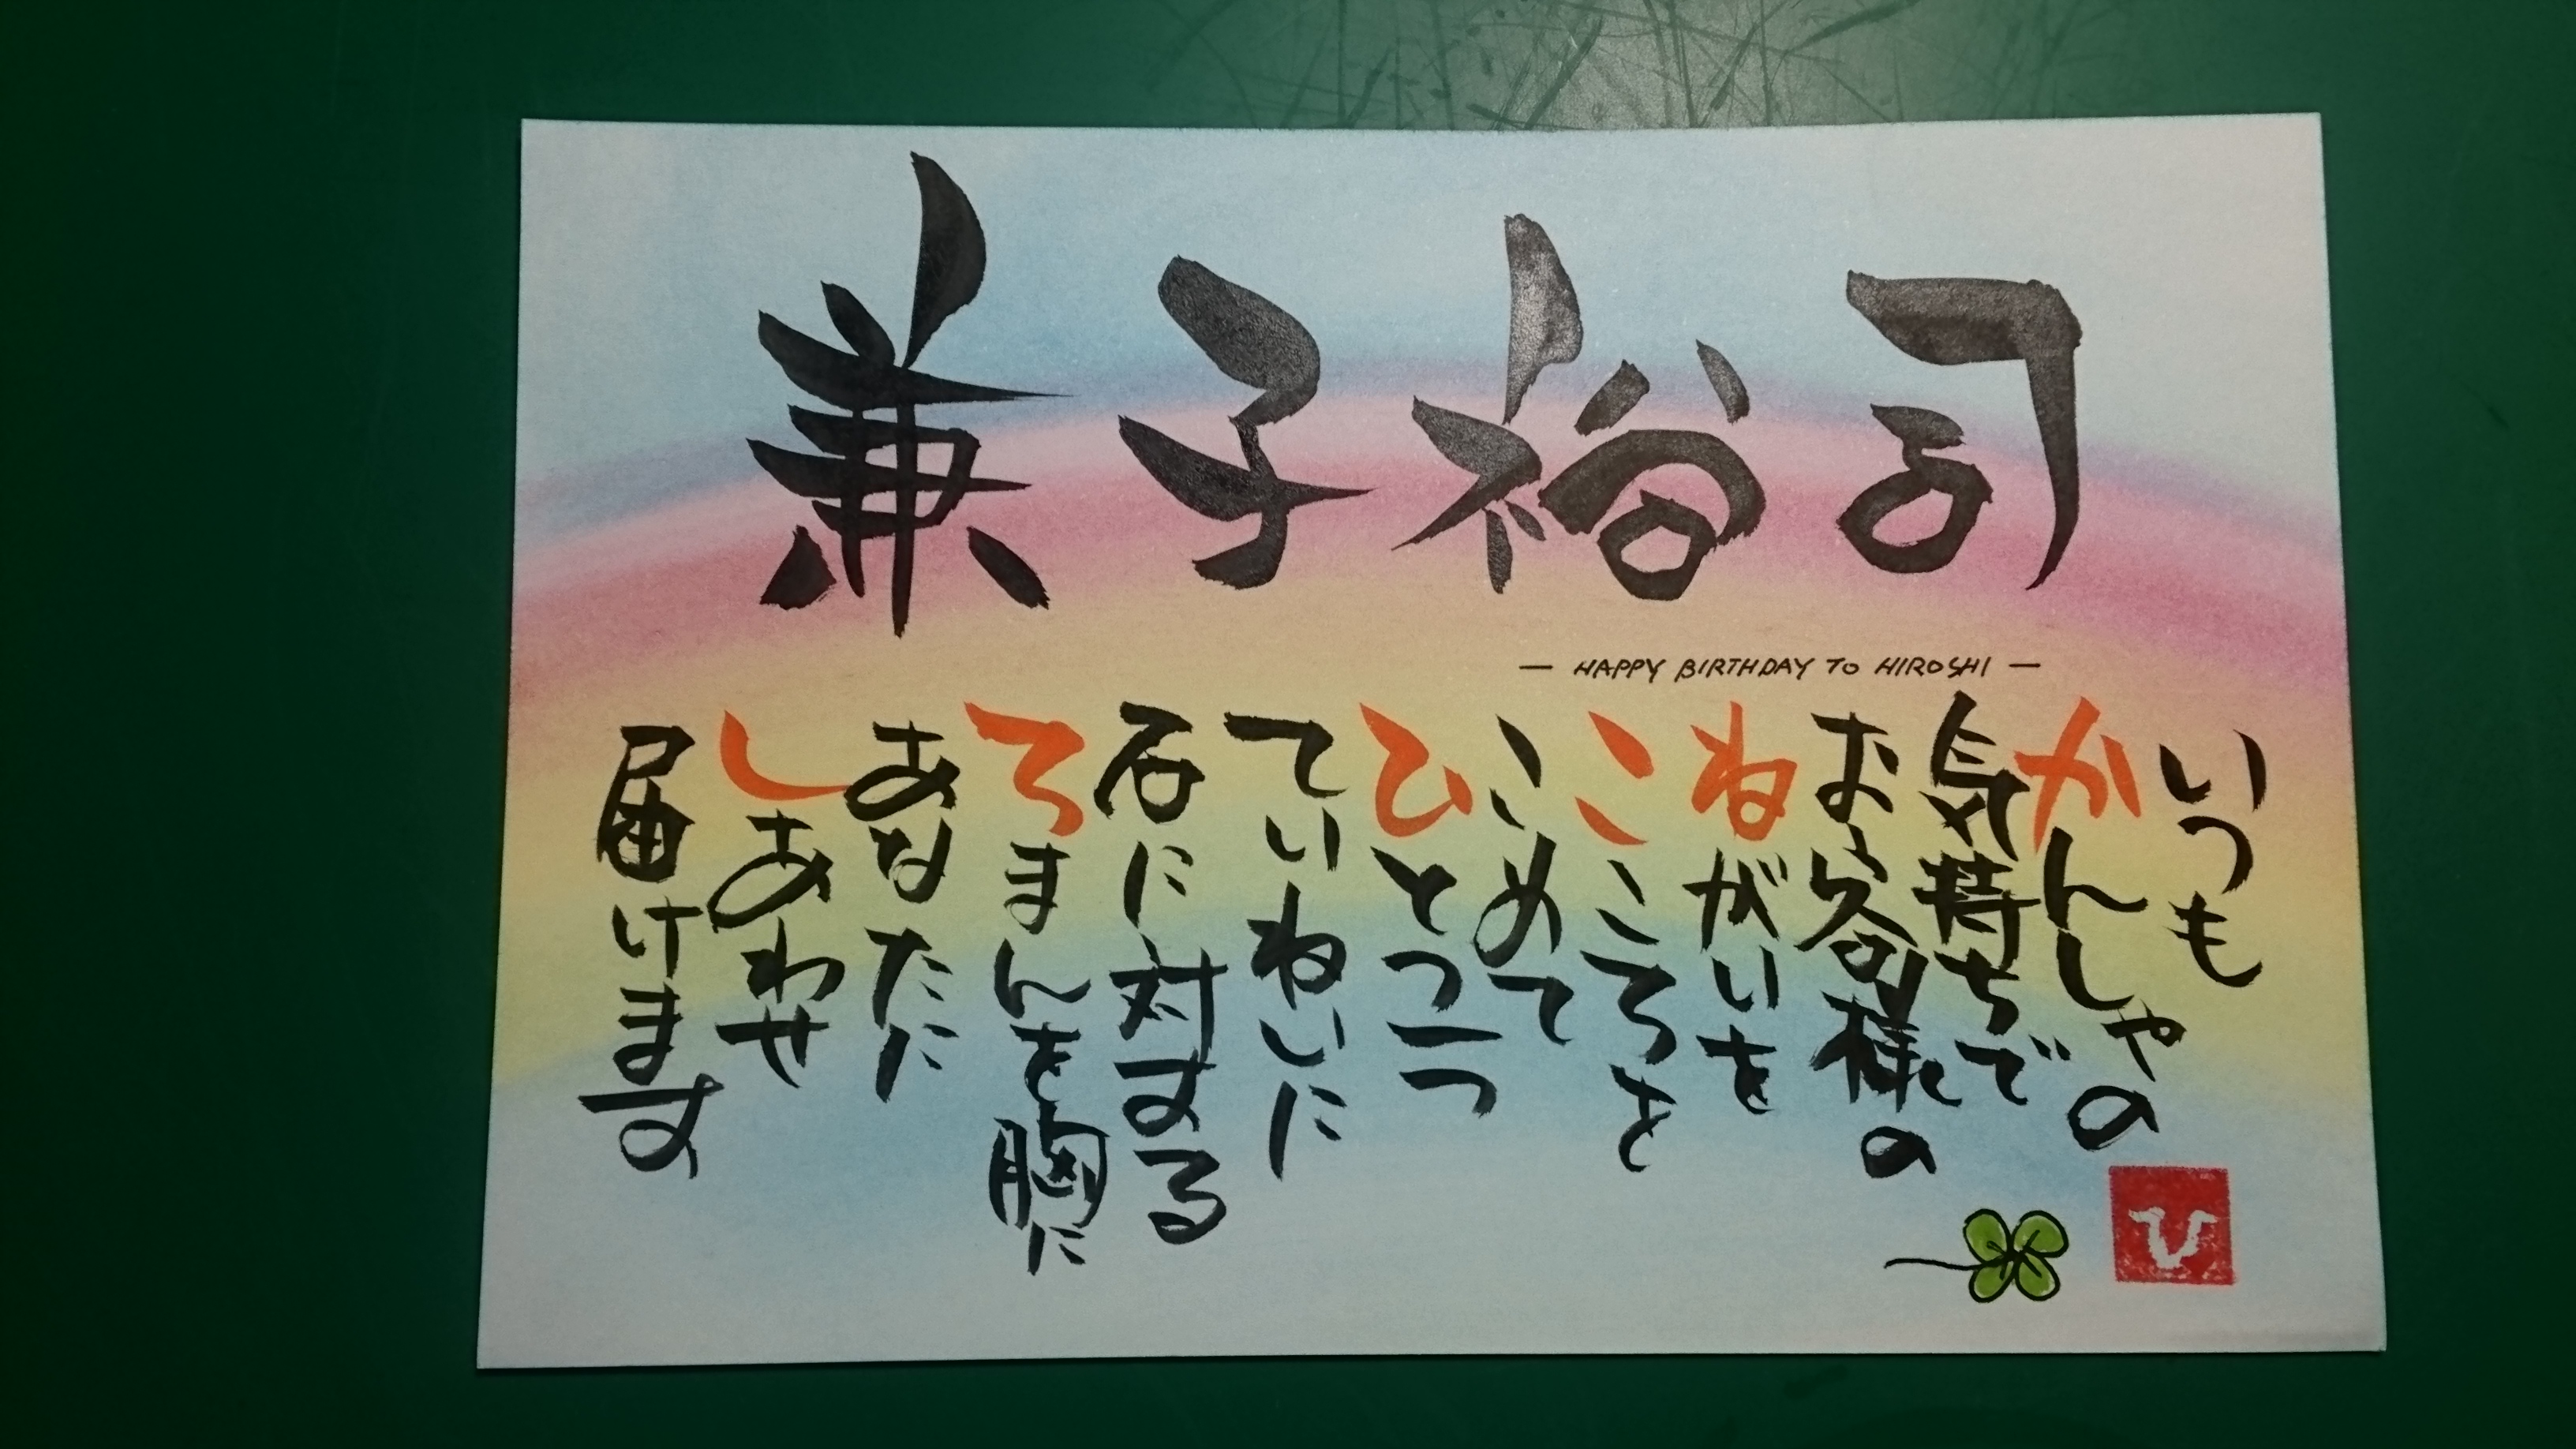 兼子裕司
— HAPPY BIRTHDAY TO HIROSHI —
いつも
かんしゃの
気持ちで
お客様の
ねがいを
こころを
こめて
ひとつ一つ
ていねいに
石に対する
ろまんを胸に
あなたに
しあわせ
届けます
ひ